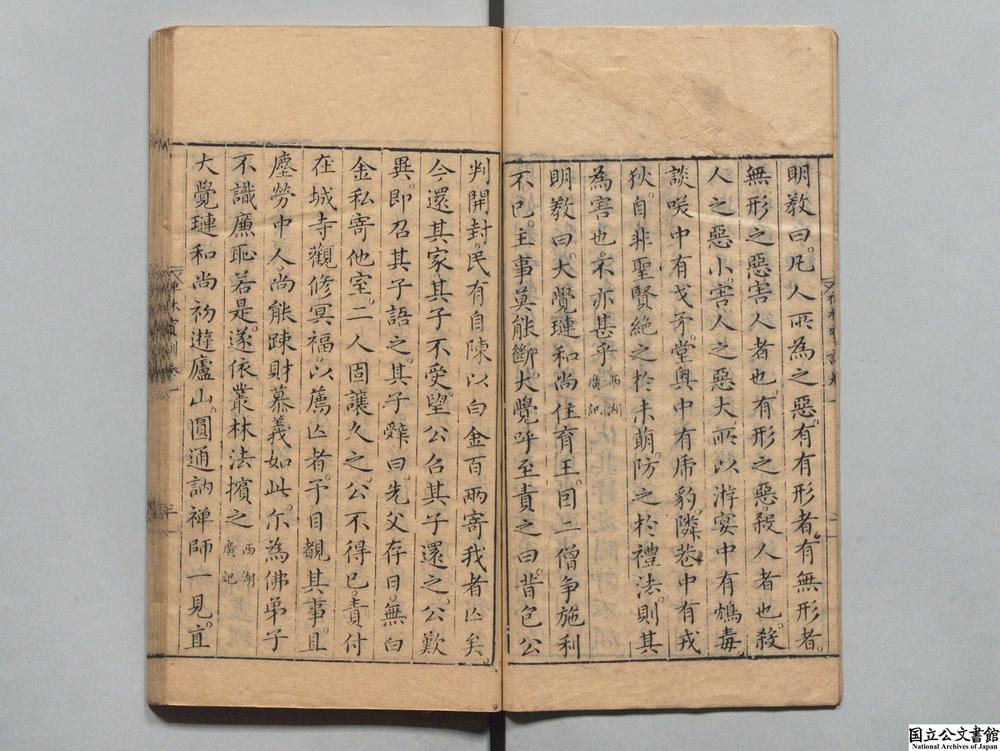 明教曰。凡人所為之惡。有有形者。有無形者。
無形之惡。害人者也。有形之惡。殺人者也。殺
人之惡小。害人之惡大。所以游宴中有鴆毒。
談咲中有戈矛。堂奥中有虎豹。隣巷中有戎
狄。自非聖賢絶之於未萌。防之於禮法。則其
為害也。不亦甚乎。西湖廣記
明教曰。大覺璉和尚住育王。因二僧争施利
不已。主事莫能斷。大覺呼至責之曰。昔包公
判開封。民有自陳以白金百兩寄我者亡矣。
今還其家。其子不受。望公召其子還之。公歎
異。即召其子語之。其子辤曰。先父存日。無白
金私寄他室。二人固讓久之。公不得已。責付
在城寺觀修冥福。以薦亡者。予目覩其事。且
塵勞中人。尚能踈財慕義如此。尓為佛弟子
不識廉恥若是。遂依叢林法擯之。西湖廣記
大覺璉和尚初遊廬山。圓通訥禅師一見。直
国立公文書館
National Archives of Japan